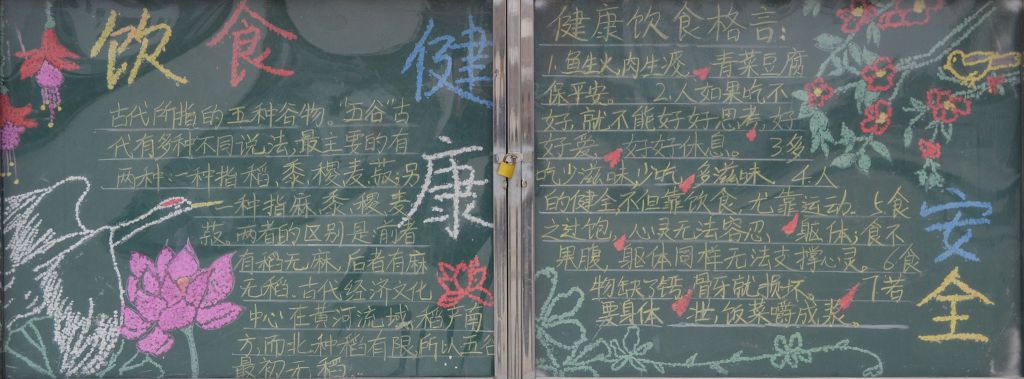 饮食健康
古代所指的五种谷物。"五谷"古
代有多种不同说法,最主要的有
两种:一种指稻、黍、稷、麦、菽;另
一种指麻、黍、稷、麦
菽。两者的区别是:前者
有稻无麻,后者有麻
无稻。古代经济文化
中心在黄河流域,稻
方,而北
种稻有限,所以五谷
最初无稻。
健康饮食格言:
1.鱼生火,肉生痰,青菜豆腐
保平安。 2.人如果吃不
好,就不能好好思考,好
好爱,好好休息。 3多
吃少滋味,少吃多滋味。4.人
的健全,不但靠饮食,尤靠运动。5食
之过饱,心灵无法容忍,躯体;食不
果腹,躯体同样无法支撑心灵。6食
物缺了钙,骨牙就损坏。 7若
要身体壮,饭菜嚼成浆。
安全